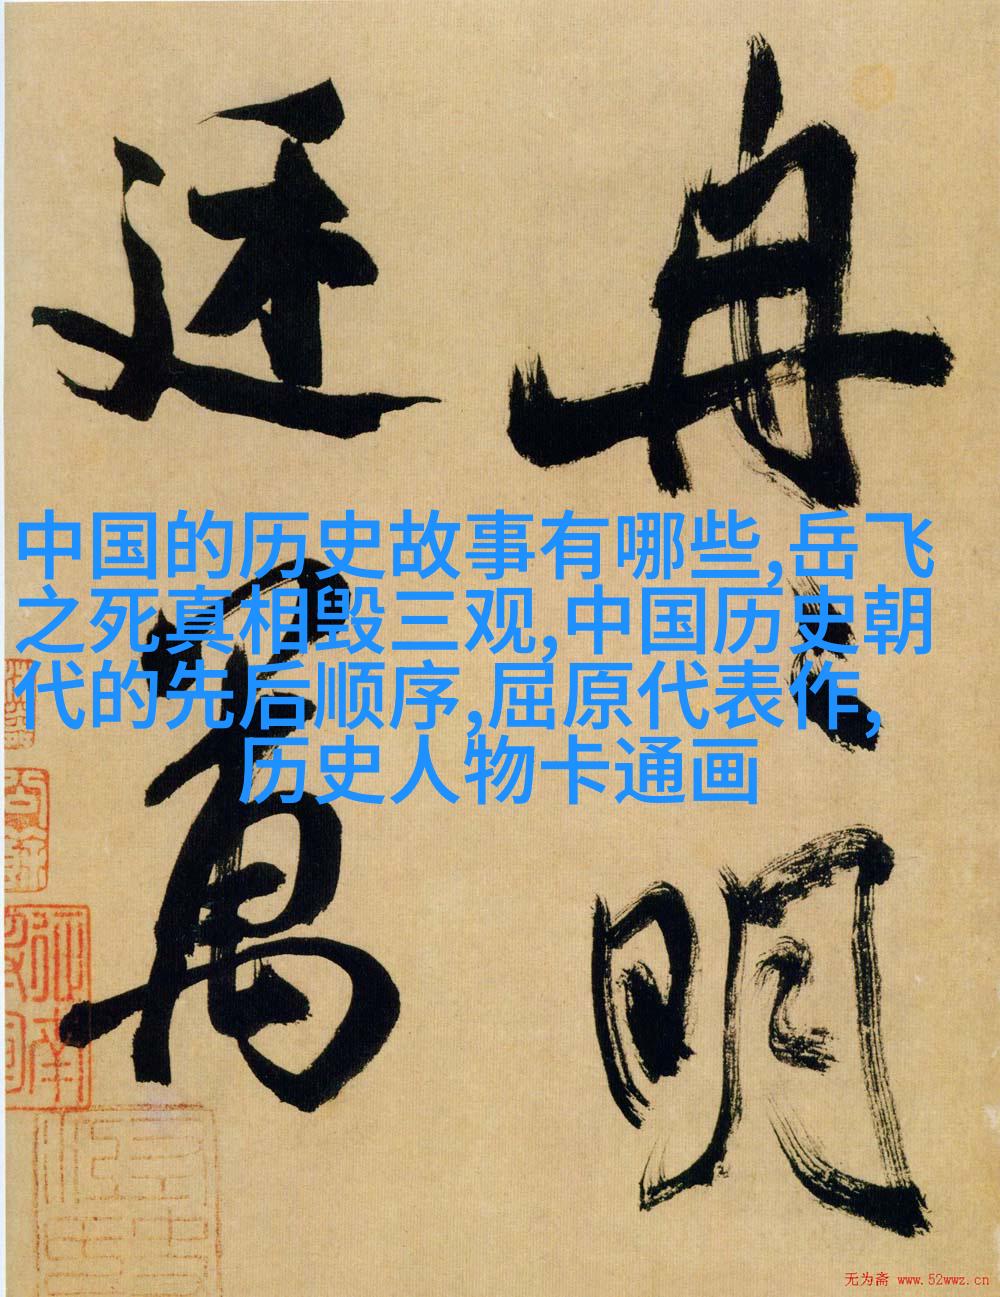 冉〻明
廷萬
中国的历史故事有哪些,岳飞
之死真相毁三观,中国历史朝
代的先后顺序,屈原代表作,
历史人物卡通画
无为斋 www.52wwz.cn